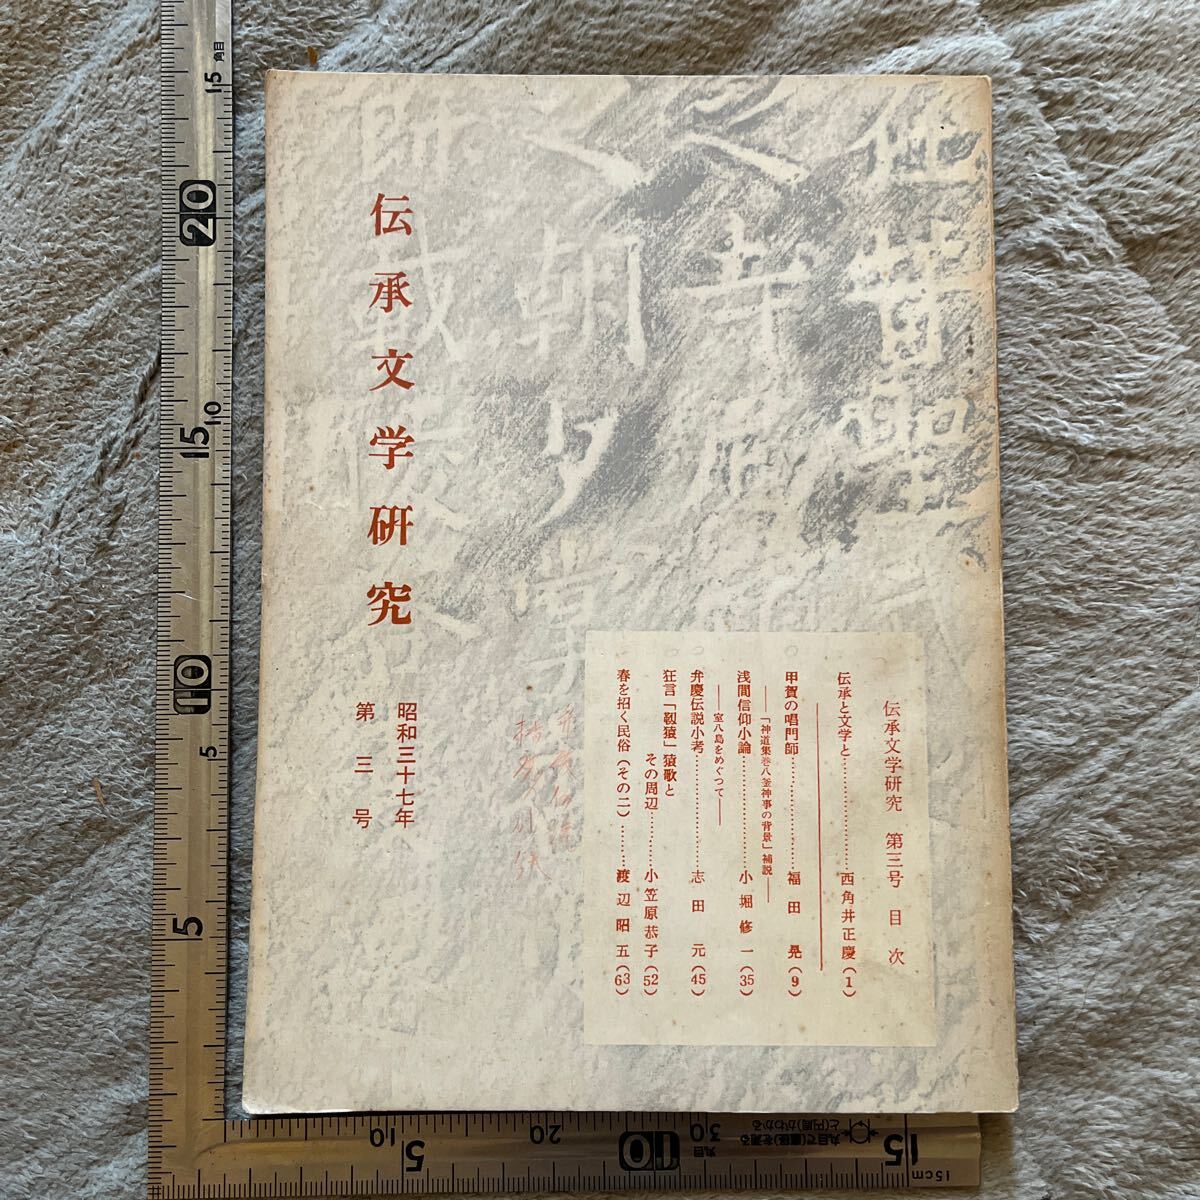 伝承文学研究
昭和三十七年
第三号
伝承文学研究 第三号 目次
伝承と文学と………………西角井正慶(1)
甲賀の唱門師………………福田晃(9)
――「神道集巻八釜神事の背景」補説――
浅間信仰小論………………小堀修一(35)
――室八島をめぐつて――
弁慶伝説小考………………志田元(45)
狂言「靱猿」猿歌と
その周辺………小笠原恭子(52)
春を招く民俗(その二)………渡辺昭五(63)
朝夕
寺
角目
15
10
5
20
15
10
5
5
10
20
30
丸目
10
15
15cm
丸目で(直径)を測る
と(円周)がわかる